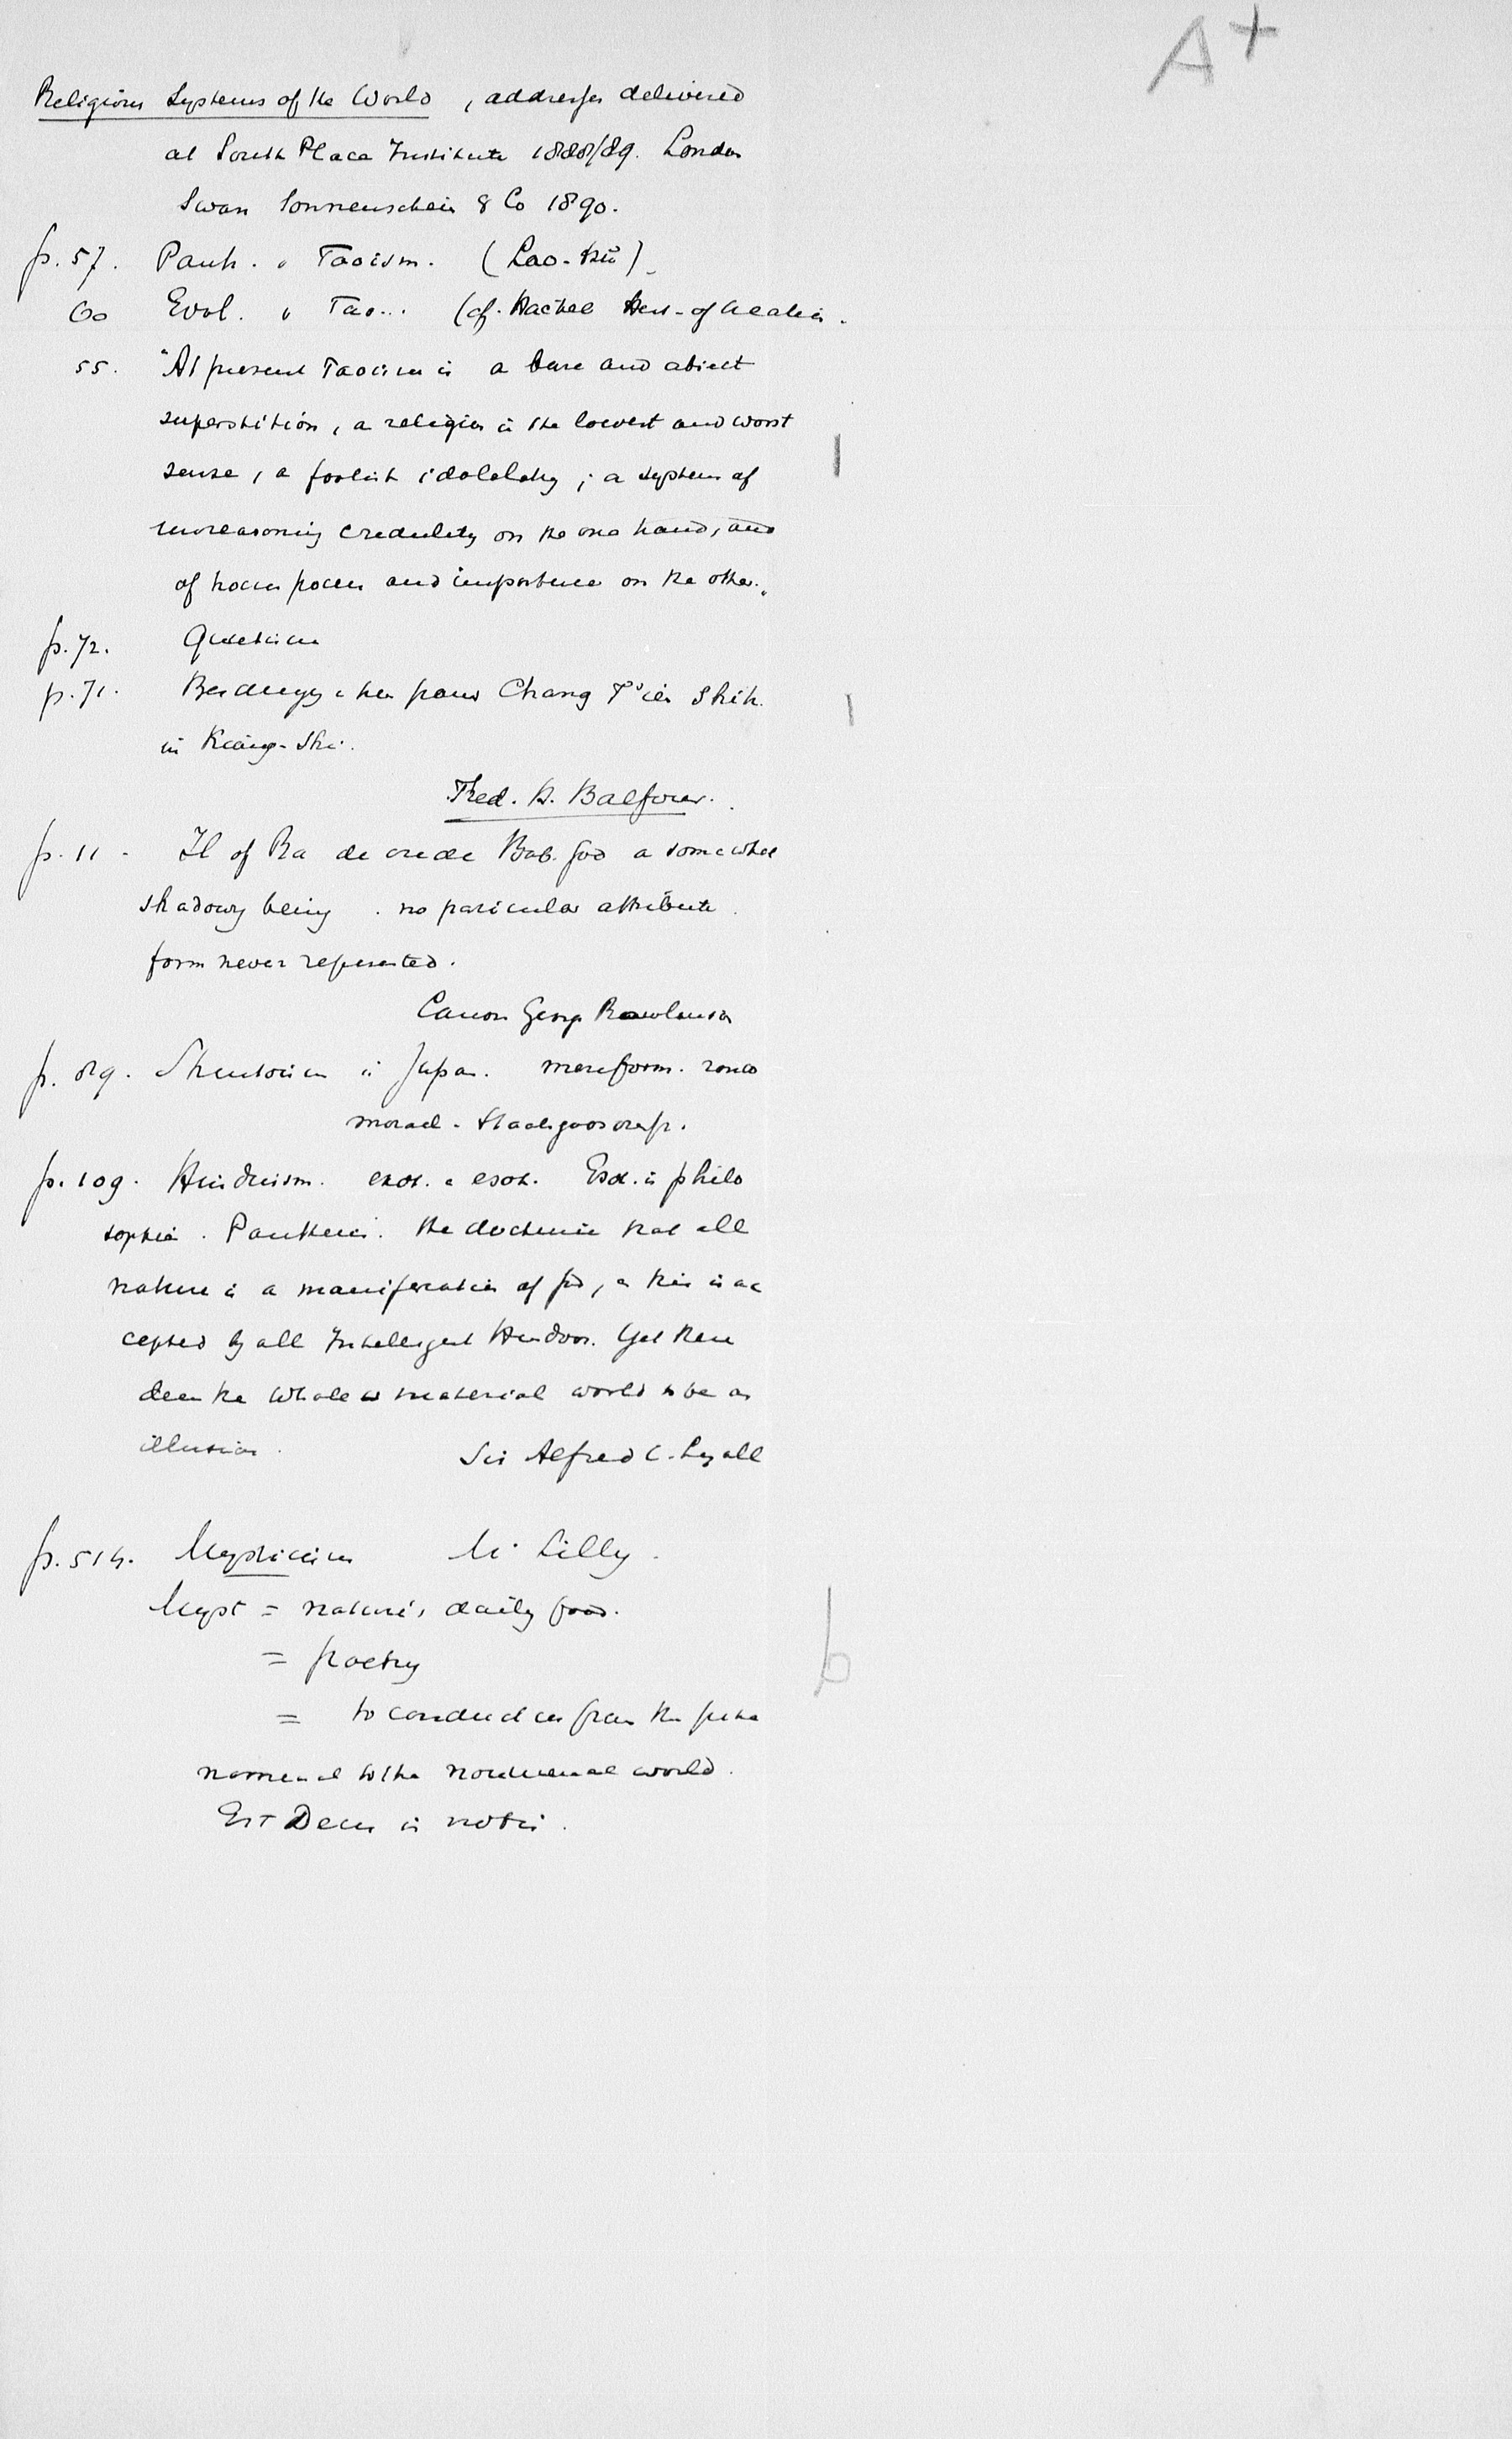 A+
Religious Systems of the World, addresses delivered
at South Place Institute 1888/89. London
Swan Sonnenschein & Co 1890.
p. 57. Panth. Taoism. (Lao-tzŭ)
60 Evol. Tao... (cf. Hackel of creation.
55. "At present Taoism is a base and abject
superstition, a religion in the lowest and worst
sense, a foolish idolatry; a system of
unreasoning credulity on the one hand, and
of hocus pocus and imposture on the other."
p. 72. Quietism
p. 71. paus Chang T'ien Shih.
in Kiang-Shi.
Fred. H. Balfour.
p. 11 - Il of Ra de oude Bab. god a somewhat
shadowy being. no particular attribute.
form never represented.
Canon George Rawlinson
p. 89. Shintoism in Japan. mere form. zonder
moraal. Staatsgodsdienst.
p. 109. Hinduism. exot. e esot. Esot. is philo
sophie. Pantheis. the doctrine that all
nature is a manifestation of god, this is ac
cepted by all Intelligent Hindoos. Yet these
deem the whole material world to be an
illusion. Sir Alfred C. Lyall
p. 514. Mysticism Mr Lilly.
Myst = nature's daily food.
= poetry
= to conduct us from the phe
nomenal to the noumenal world.
Est Deus in nobis.
b